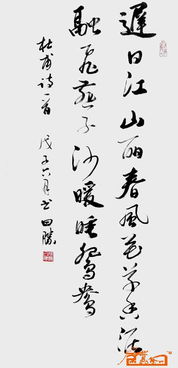 遲日江山麗春風花草香泥
融飛燕子沙暖睡鴛鴦
杜甫詩一首 戊子六月书田勝